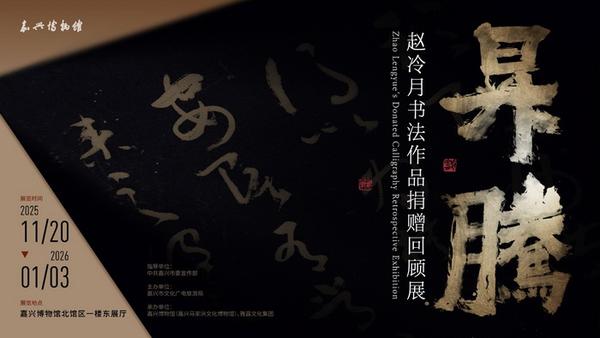 嘉兴博物馆
昇腾
赵冷月书法作品捐赠回顾展
Zhao Lengyue's Donated Calligraphy Retrospective Exhibition
展览时间
2025
11/20
2026
01/03
展览地点
嘉兴博物馆北馆区一楼东展厅
指导单位:
中共嘉兴市委宣传部
主办单位:
嘉兴市文化广电旅游局
承办单位:
嘉兴博物馆(嘉兴马家浜文化博物馆)、雅昌文化集团